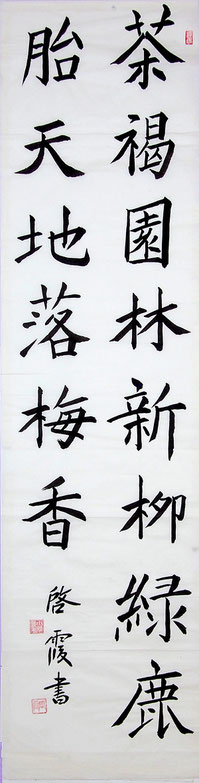 茶褐園林新柳緑鹿
胎天地落梅香
啓霞書